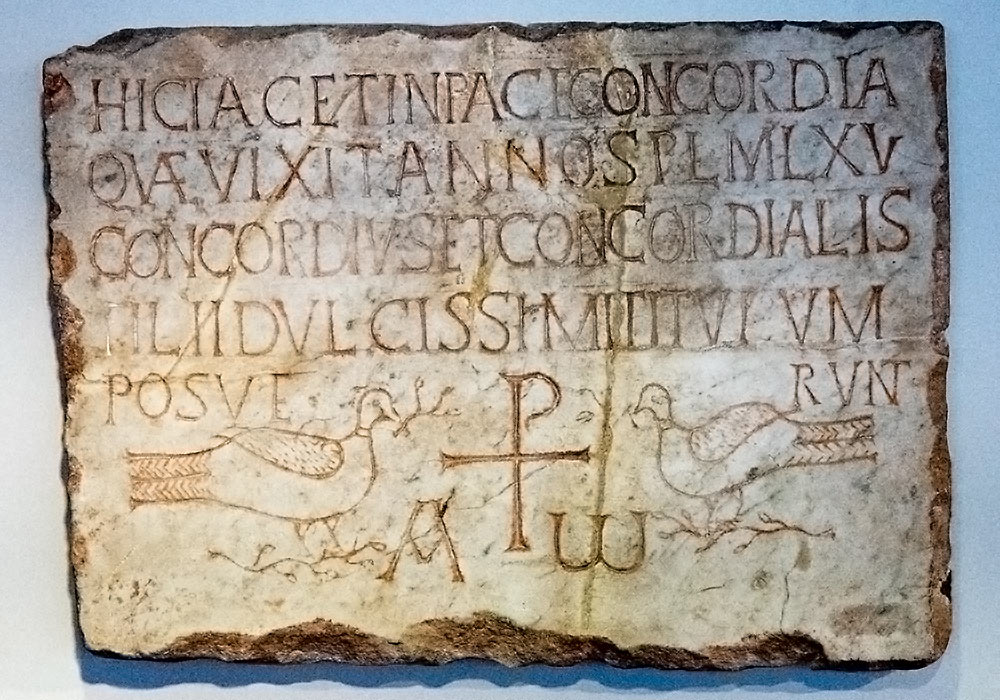 HIC IACET IN PACE CONCORDIA
QVÆ VIXIT ANNOS PLM LXV
CONCORDIVS ET CONCORDIALIS
FILII DVLCISSIMI TITVLVM
POSVE ⳨ RVNT
A ω